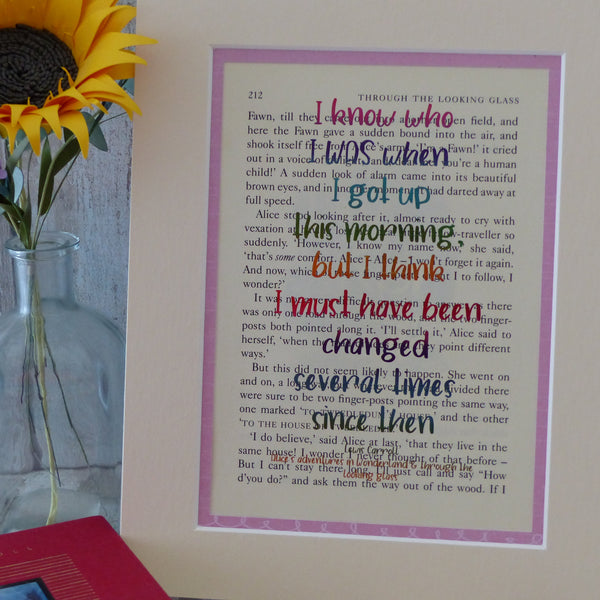 212 THROUGH THE LOOKING GLASS
I know who
I was when
I got up
this morning,
but I think
I must have been
changed
several times
since then
Lewis Carroll
Alice's adventures in Wonderland & Through the
looking glass
Fawn, till they came open field, and
here the Fawn gave a sudden bound into the air, and
shook itself free from Alice's arms. 'I'm a Fawn!' it cried
out in a voice of you're a human
child!' A sudden look of alarm came into its beautiful
brown eyes, and in another moment it had darted away at
full speed.
Alice stood looking after it, almost ready to cry with
vexation at fellow-traveller so
suddenly. 'However, I know my name now,' she said,
'that's some comfort. Alice – Alice – I won't forget it again.
And now, which finger-posts ought I to follow, I
wonder?'
It was not a very difficult question to answer, as there
was only one road through the wood, and the two finger-
posts both pointed along it. 'I'll settle it,' Alice said to
herself, 'when they point different
ways.'
But this did not seem likely to happen. She went on
and on, a long divided there
were sure to be two finger-posts pointing the same way,
one marked 'TO TWEEDLEDUM'S HOUSE,' and the other
'TO THE HOUSE OF TWEEDLEDEE.'
'I do believe,' said Alice at last, 'that they live in the
same house! I wonder I never thought of that before –
But I can't stay there long. I'll just call and say "How
d'you do?" and ask them the way out of the wood. If I